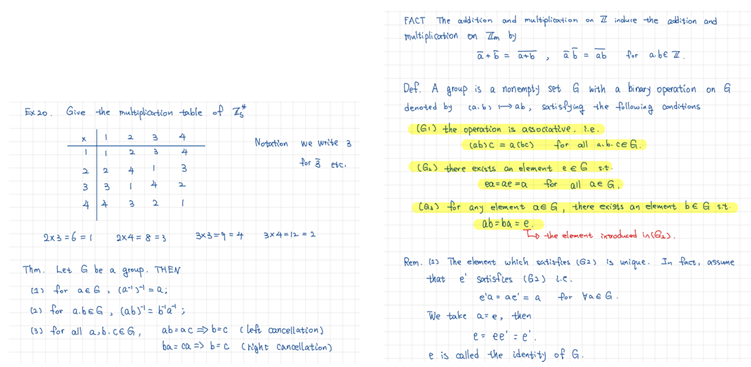 Ex 20. Give the multiplication table of ℤ₅*
× 1 2 3 4
1 1 2 3 4
2 2 4 1 3
3 3 1 4 2
4 4 3 2 1
Notation we write 3
for 3̄ etc.
2×3=6=1 2×4=8=3 3×3=9=4 3×4=12=2
Thm. Let G be a group. THEN
(1) for a∈G, (a⁻¹)⁻¹=a;
(2) for a.b∈G, (ab)⁻¹=b⁻¹a⁻¹;
(3) for all a,b.c∈G, ab=ac ⟹ b=c (left cancellation)
ba=ca ⟹ b=c (right cancellation)
FACT The addition and multiplication on ℤ induce the addition and
multiplication on ℤm by
ā + b̄ = \overline{a+b} , ā b̄ = \overline{ab} for a.b∈ℤ.
Def. A group is a nonempty set G with a binary operation on G
denoted by (a.b) ↦ ab, satisfying the following conditions
(G1) the operation is associative. i.e.
(ab)c = a(bc) for all a.b.c∈G.
(G2) there exists an element e∈G s.t.
ea=ae=a for all a∈G.
(G3) for any element a∈G, there exists an element b∈G s.t.
ab=ba=e.
↳ the element introduced in (G2)
Rem. (1) The element which satisfies (G2) is unique. In fact, assume
that e' satisfies (G2) i.e.
e'a = ae' = a for ∀a∈G.
We take a=e, then
e = ee' = e'.
e is called the identity of G.